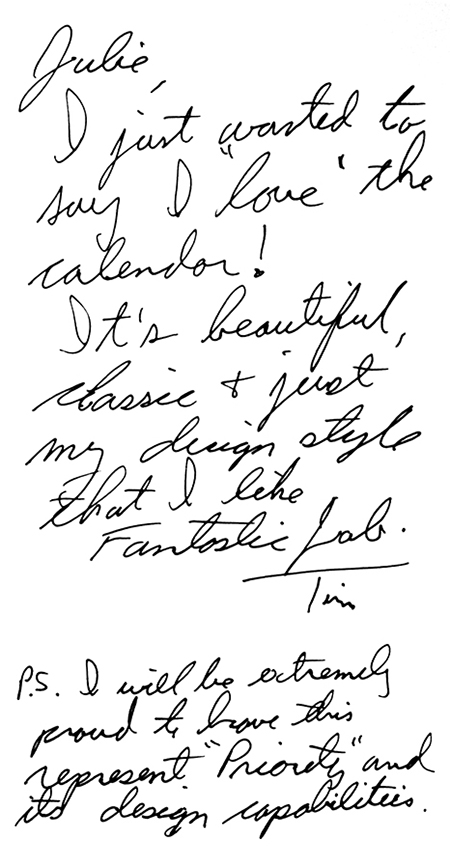 Julie,
I just wanted to
say I "love" the
calendar!
It's beautiful,
classic & just
my design style
that I like
Fantastic Job.
Tim
P.S. I will be extremely
proud to have this
represent "Priority" and
its design capabilities.